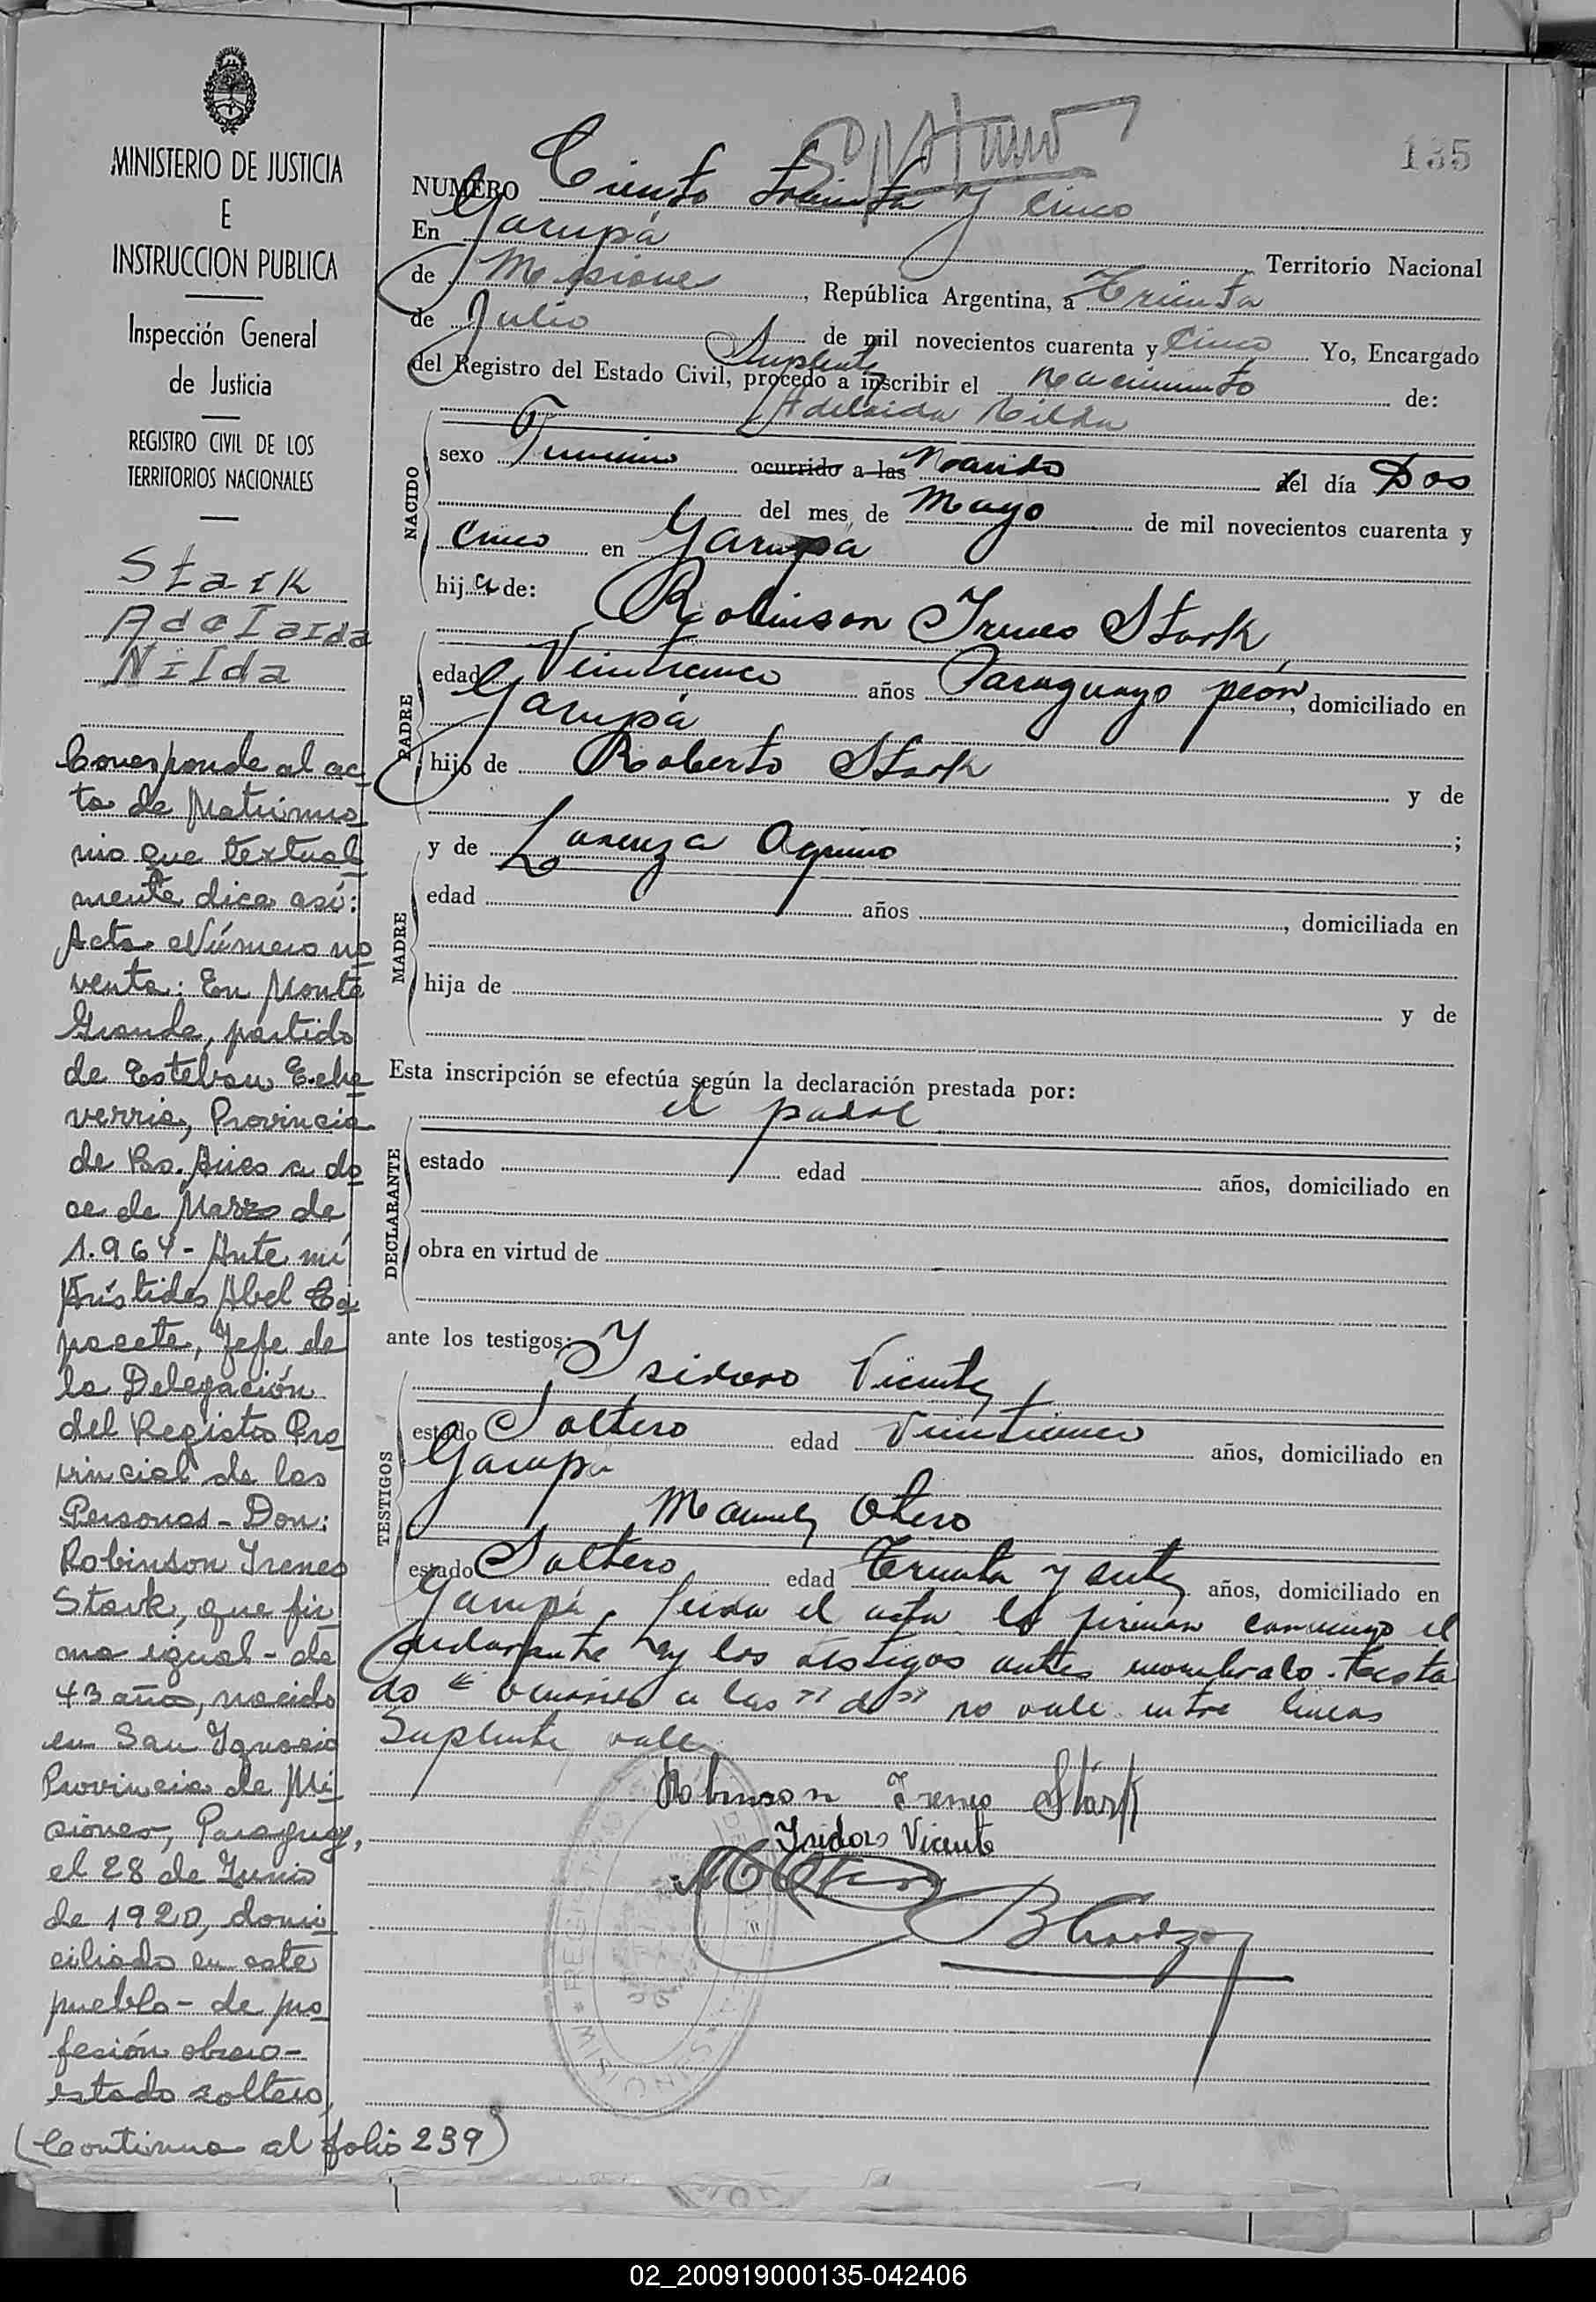 MINISTERIO DE JUSTICIA
E
INSTRUCCION PUBLICA
Inspección General
de Justicia
REGISTRO CIVIL DE LOS
TERRITORIOS NACIONALES
Stark
Adelaida
Nilda
Corresponde al ac
ta de Matrimo
nio que textual
mente dice así:
Acta Número no
venta: En Monte
Grande, partido
de Esteban Eche
verria, Provincia
de Bs. Aires a do
ce de Marzo de
1.964 - Ante mí
Arístides Abel
Jefe de
la Delegación
del Registro Pro
vincial de las
Personas - Don:
Robinson Ireneo
Stark, que fir
ma igual - de
43 años, nacido
en San Ignacio
Provincia de Mi
siones, Paraguay,
el 28 de Junio
de 1920, domi
ciliado en este
pueblo - de pro
fesión obrero -
estado soltero,
(Continua al folio 239)
135
NUMERO Ciento treinta y cinco
En Garupá
Territorio Nacional
de Misiones, República Argentina, a Treinta
de Julio de mil novecientos cuarenta y Cinco Yo, Encargado
Suplente
del Registro del Estado Civil, procedo a inscribir el nacimiento de:
Adelaida Nilda
NACIDO
sexo Femenino ocurrido a las Nacida del día Dos
del mes de Mayo de mil novecientos cuarenta y
Cinco en Garupá
hija de: Robinson Ireneo Stark
PADRE
edad Veinticinco años Paraguayo peón, domiciliado en
Garupá
hijo de Roberto Stark
y de
;
y de Lorenza Aquino
MADRE
edad años , domiciliada en
hija de
y de
Esta inscripción se efectúa según la declaración prestada por:
el padre
DECLARANTE
estado edad años, domiciliado en
obra en virtud de
ante los testigos: Isidoro Vicente
TESTIGOS
estado Soltero edad Veinticinco años, domiciliado en
Garupá
Manuel Otero
estado Soltero edad Treinta y siete años, domiciliado en
Garupá. Leida el acta la firman conmigo el
declarante y los testigos antes nombrado. Testa
do "ocurrido a las" "d" no vale entre lineas
Suplente vale
Robinson Ireneo Stark
Isidoro Vicente
MOtero
REGISTRO
MISIONES
02_200919000135-042406